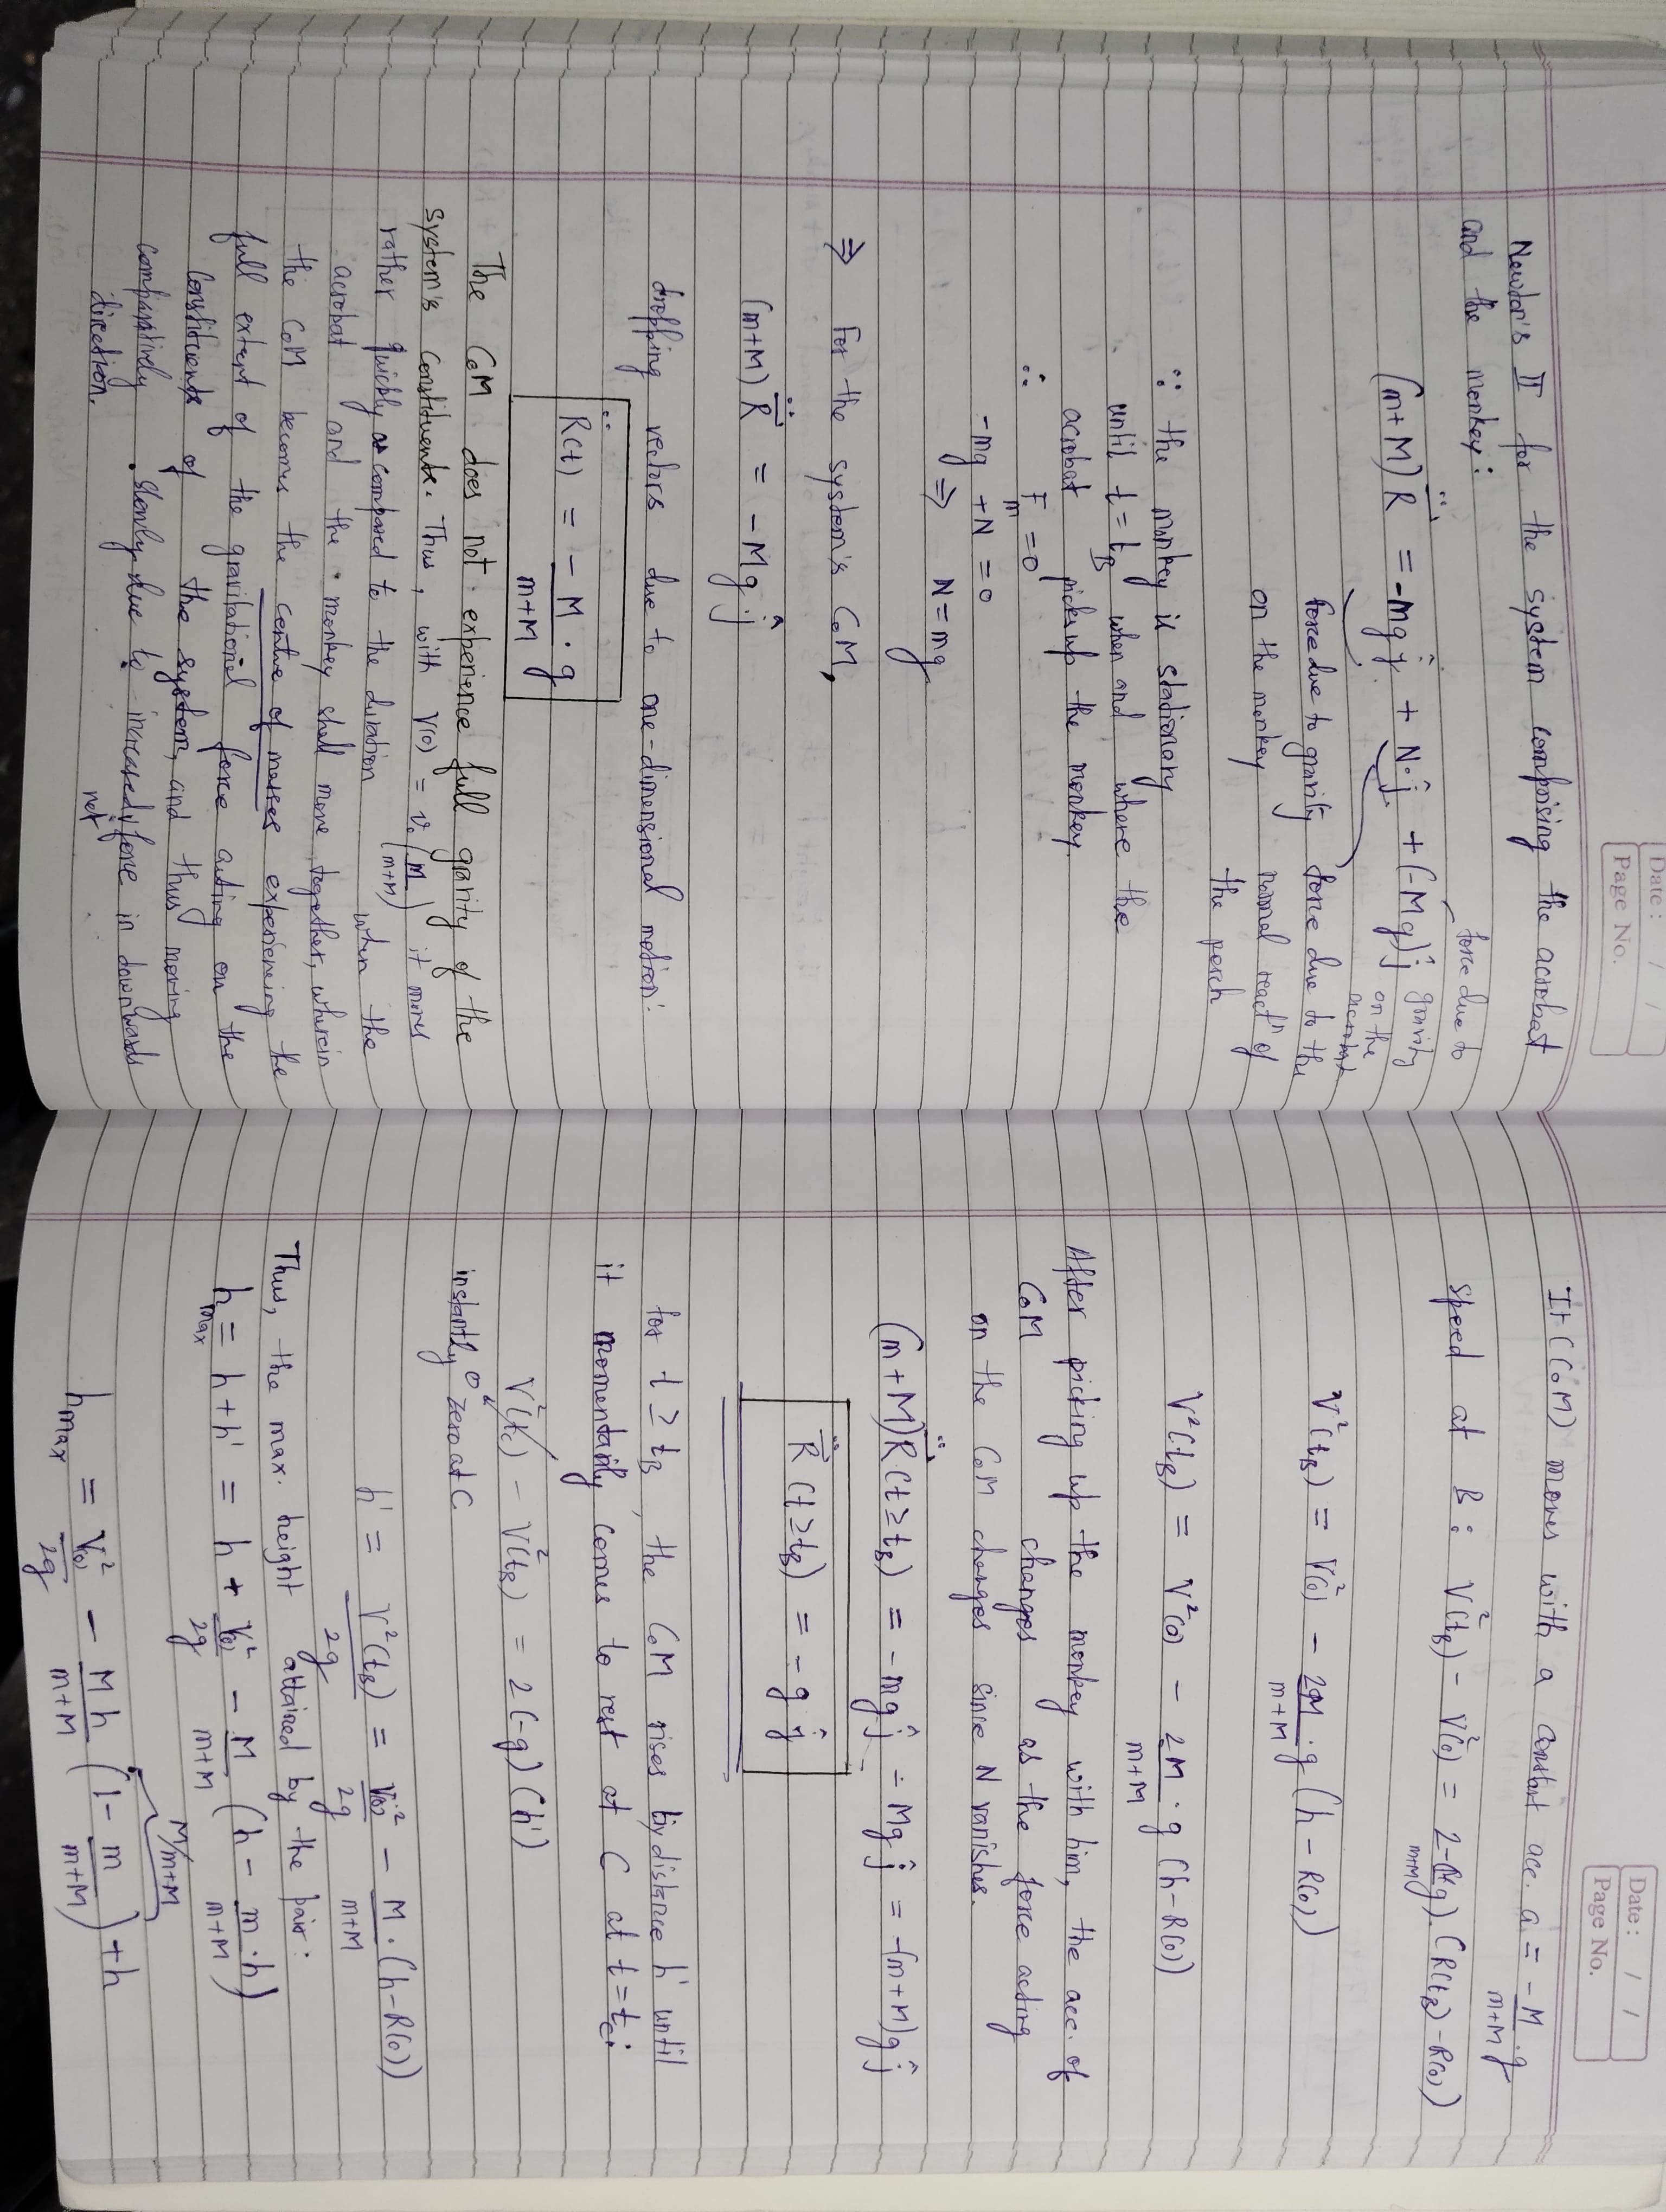 Date : / /
Page No.
Newton's II for the system comprising the acrobat
and the monkey:
force due to
gravity
on the
acrobat
(m+M) R̈⃗ = -mg ĵ + N·ĵ + (-Mg)ĵ
force due to gravity
on the monkey
force due to the
normal reactⁿ of
the perch
∵ the monkey is stationary
until t = t_B when and where the
acrobat picks up the monkey.
∴ F_m = 0
-mg + N = 0
⇒ N = mg
⇒ For the system's CoM,
(m+M) R̈⃗ = -Mg ĵ
dropping vectors due to one-dimensional motion:
R̈(t) = -M/(m+M) · g
The CoM does not experience full gravity of the
system's constituents. Thus, with V(0) = v₀ (M/(m+M)) it moves
rather quickly as compared to the duration when the
acrobat and the monkey shall move together, wherein
the CoM becomes the centre of masses experiencing the
full extent of the gravitational force acting on the
constituents of the system, and thus moving
comparatively slowly due to increased net force in downwards
direction.
Date : / /
Page No.
It (CoM) moves with a constant acc. a = -M/(m+M) · g
speed at B : V²(t_B) - V²(0) = 2(-M/(m+M) g) · (R(t_B) - R(0))
V²(t_B) = V²(0) - 2M/(m+M) · g (h - R(0))
V²(t_B) = V²(0) - 2M/(m+M) · g (h - R(0))
After picking up the monkey with him, the acc. of
CoM changes as the force acting
on the CoM changes since N vanishes.
(m+M) R̈⃗ (t ≥ t_B) = -mg ĵ - Mg ĵ = -(m+M)g ĵ
R̈⃗ (t ≥ t_B) = -g ĵ
for t ≥ t_B, the CoM rises by distance h' until
it momentarily comes to rest at C at t = t_C:
V²(t_C) - V²(t_B) = 2(-g)(h')
instantly 0 zero at C
h' = V²(t_B)/2g = V(0)²/2g - M/(m+M) · (h - R(0))
Thus, the max. height attained by the pair:
h_max = h + h' = h + V²(0)/2g - M/(m+M) (h - m·h/(m+M))
M/m+M
h_max = V²(0)/2g - Mh/(m+M) (1 - m/(m+M)) + h